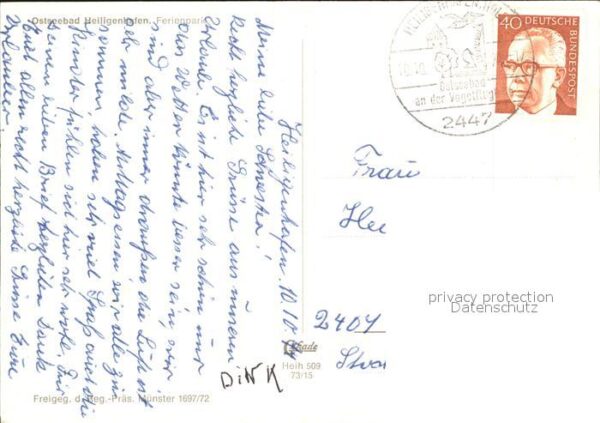 Ostseebad Heiligenhafen. Ferienpark
Heiligenhafen, 10.10.
Meine liebe Schwester!
Recht herzliche Grüsse aus unserem
Urlaub. Es ist hier sehr schön nur
das Wetter könnte besser sein, wir
sind aber immer draußen, die Luft ist
sehr milde. Mittagessen wir alle zu
sammen, haben sehr viel Spaß, auch die
Kinder fühlen sich hier sehr wohl. Für
Deinen lieben Brief herzlichen Dank
Euch allen recht herzliche Grüsse Eure
Urlauber.
Freigeg. d. Reg.-Präs. Münster 1697/72
Schade
Heih 509
73/15
DiNK
10.10.
Ostseebad
an der Vogelfluglinie
2447
40
DEUTSCHE
BUNDESPOST
Frau
2407
privacy protection
Datenschutz